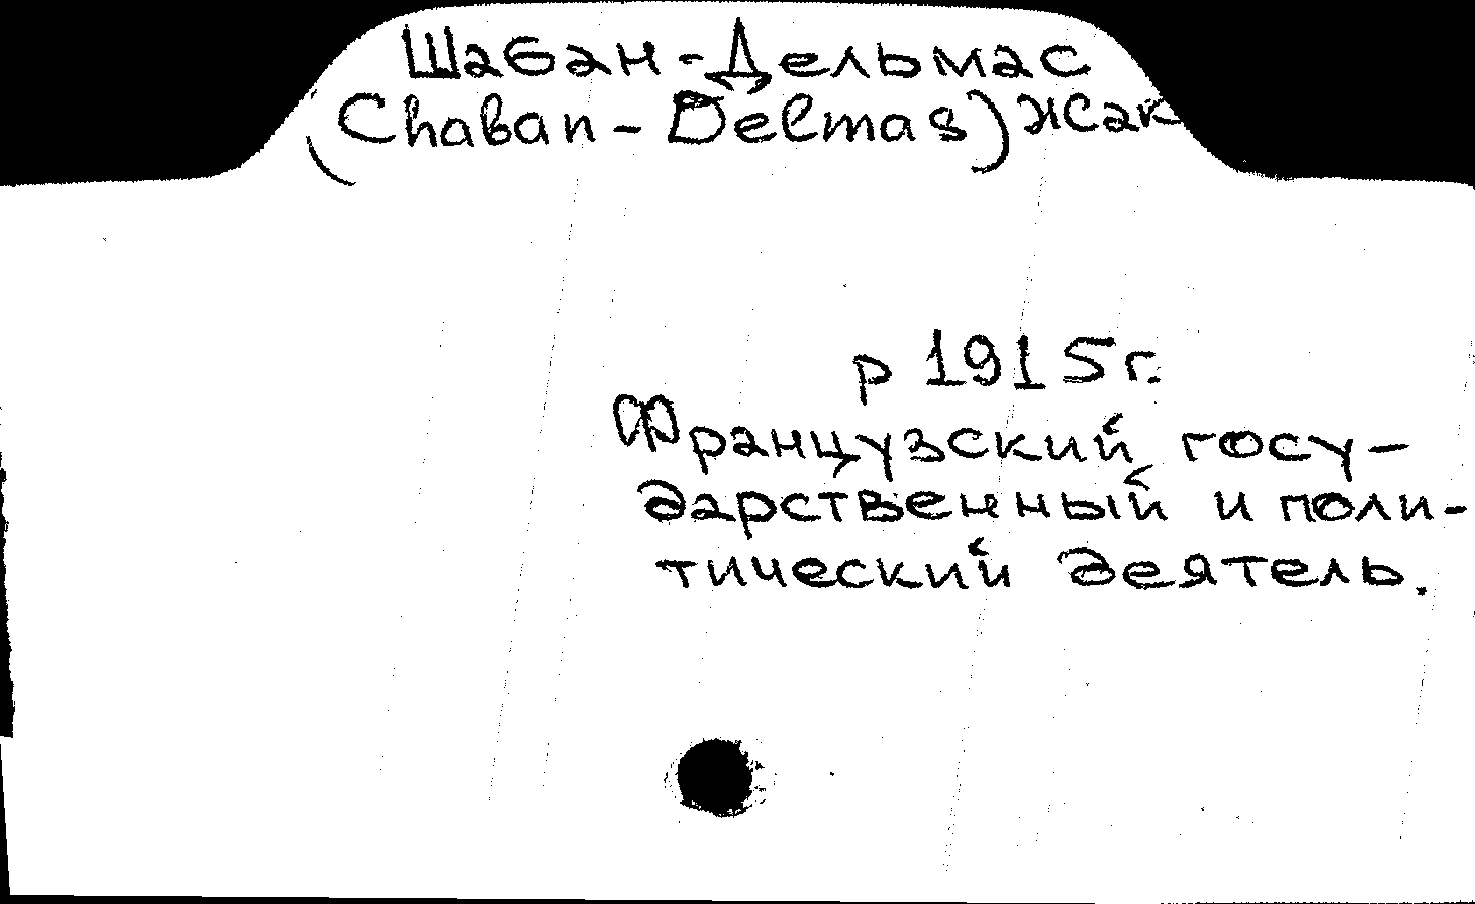 Шабан-Дельмас
(Chaban-Delmas) Жак
р 1915 г.
Французский госу-
дарственный и поли-
тический деятель.